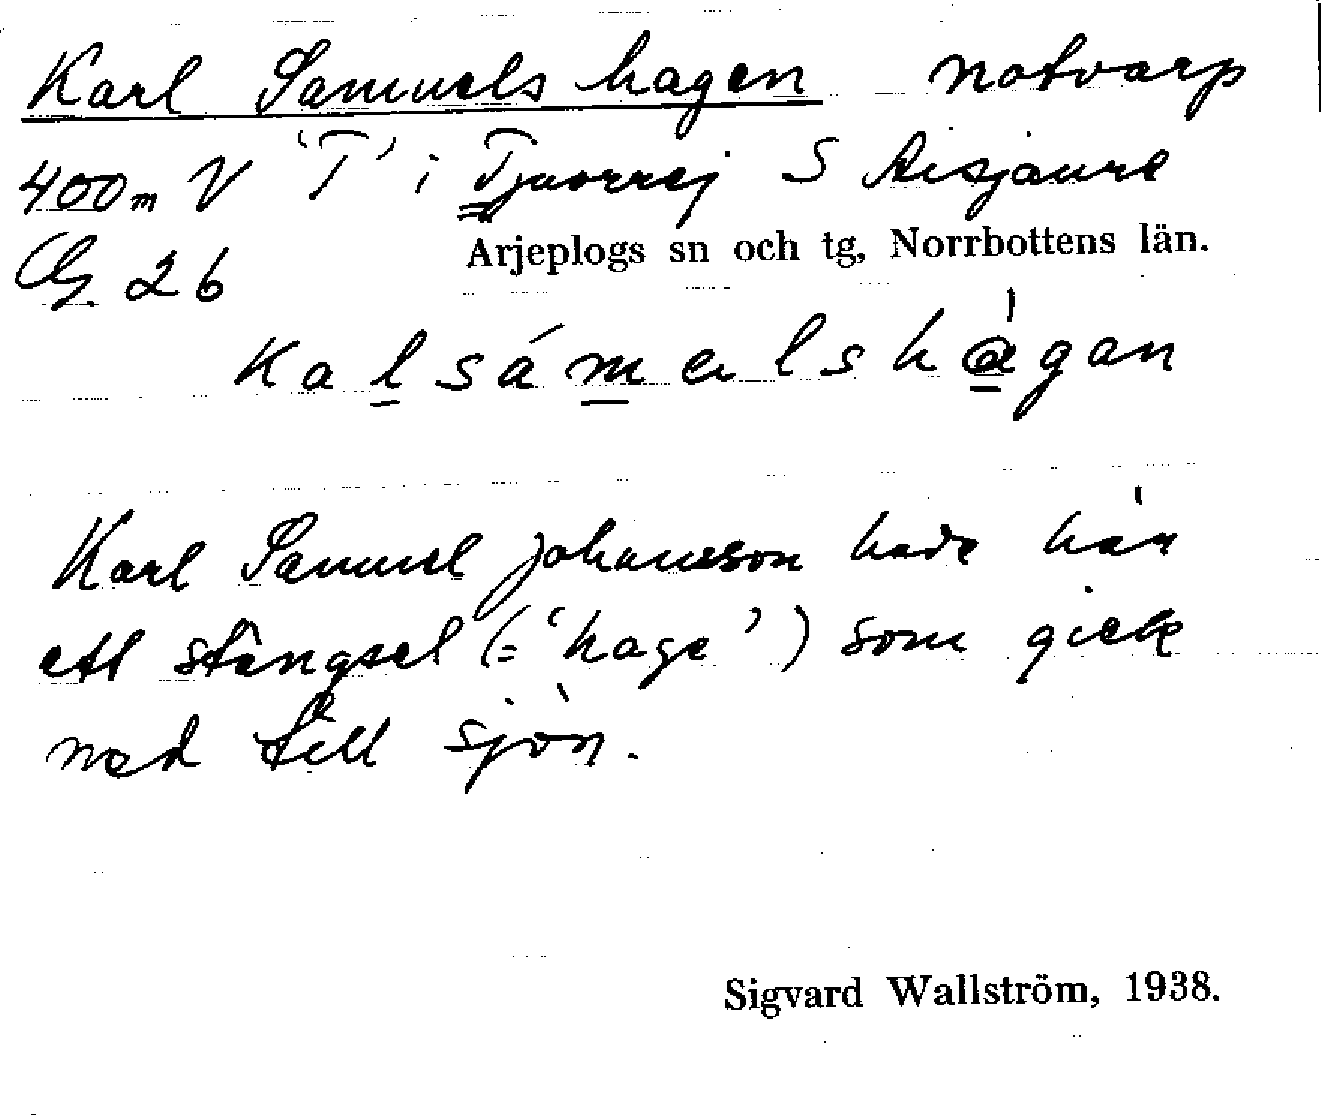 Karl Samuelshagen notvarp
400m V 'T' i Tjuorrej S Aisjaure
Arjeplogs sn och tg, Norrbottens län.
26
Kalsámελshàgan
Karl Samuel Johansson hade här
ett stängsel (= 'hage') som gick
ned till sjön.
Sigvard Wallström, 1938.